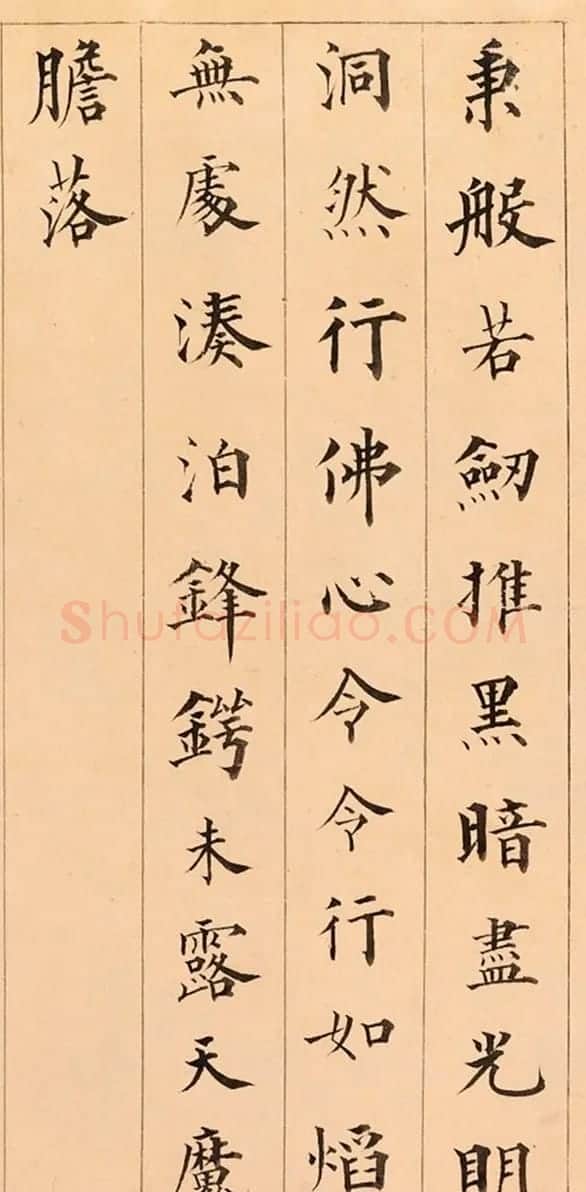 秉般若劒推黑暗盡光明
洞然行佛心令令行如熖
無處湊泊鋒鍔未露天魔
膽落
Shufaziliao.COM